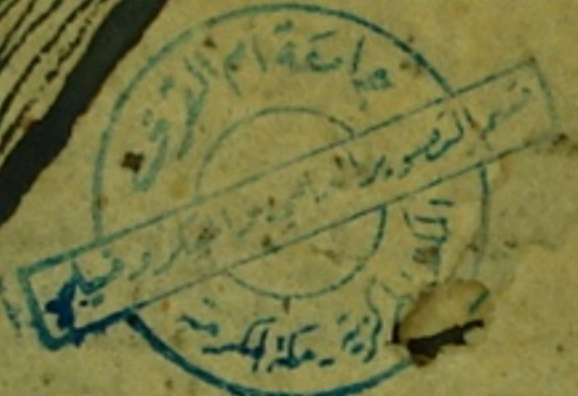 جامعة أم القرى
قسم التصوير الميكروفيلمي
المكتبة المركزية - مكة المكرمة